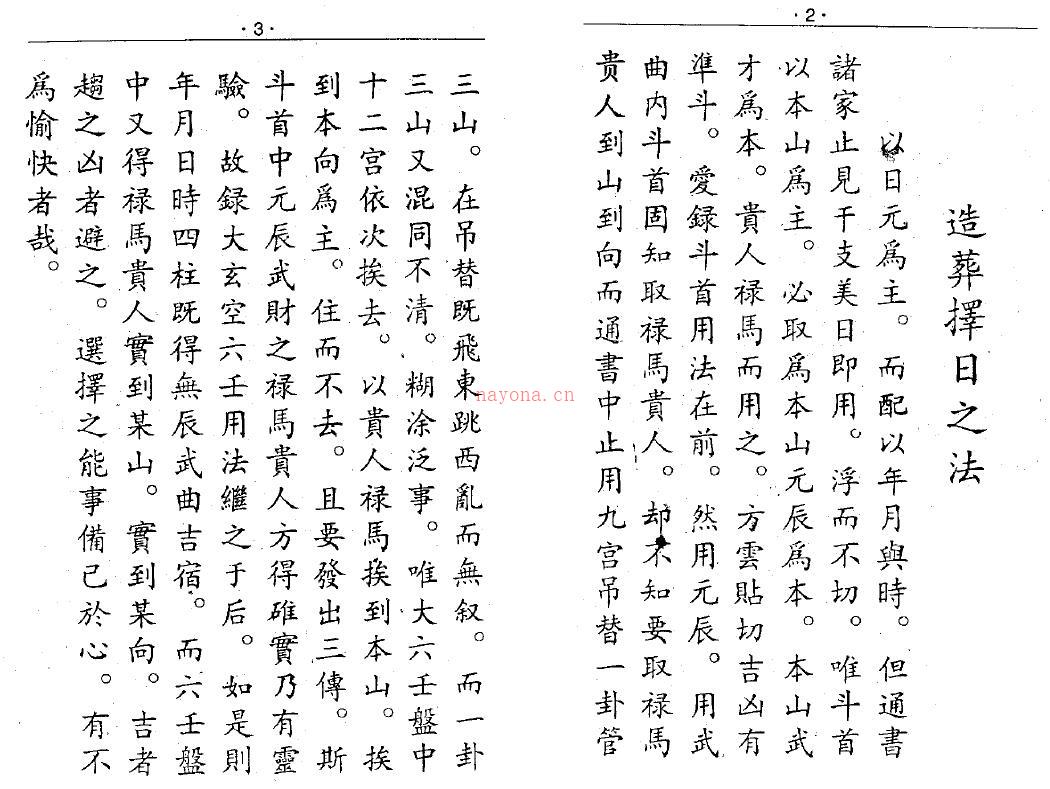 ·2·
造葬擇日之法
以日元爲主。而配以年月與時。但通書
諸家止見干支美日即用。浮而不切。唯斗首
以本山爲主。必取爲本山元辰爲本。本山武
才爲本。貴人禄馬而用之。方雲貼切吉凶有
準斗。愛録斗首用法在前。然用元辰。用武
曲内斗首固知取禄馬貴人。却不知要取禄馬
贵人到山到向而通書中止用九宫吊替一卦管
·3·
三山。在吊替既飛東跳西亂而無叙。而一卦
三山又混同不清。糊涂泛事。唯大六壬盤中
十二宫依次挨去。以貴人禄馬挨到本山。挨
到本向爲主。住而不去。且要發出三傳。斯
斗首中元辰武財之禄馬貴人方得碓實乃有靈
驗。故録大玄空六壬用法繼之于后。如是則
年月日時四柱既得無辰武曲吉宿。而六壬盤
中又得禄馬貴人實到某山。實到某向。吉者
趨之凶者避之。選擇之能事備已於心。有不
爲愉快者哉。
nayona.cn